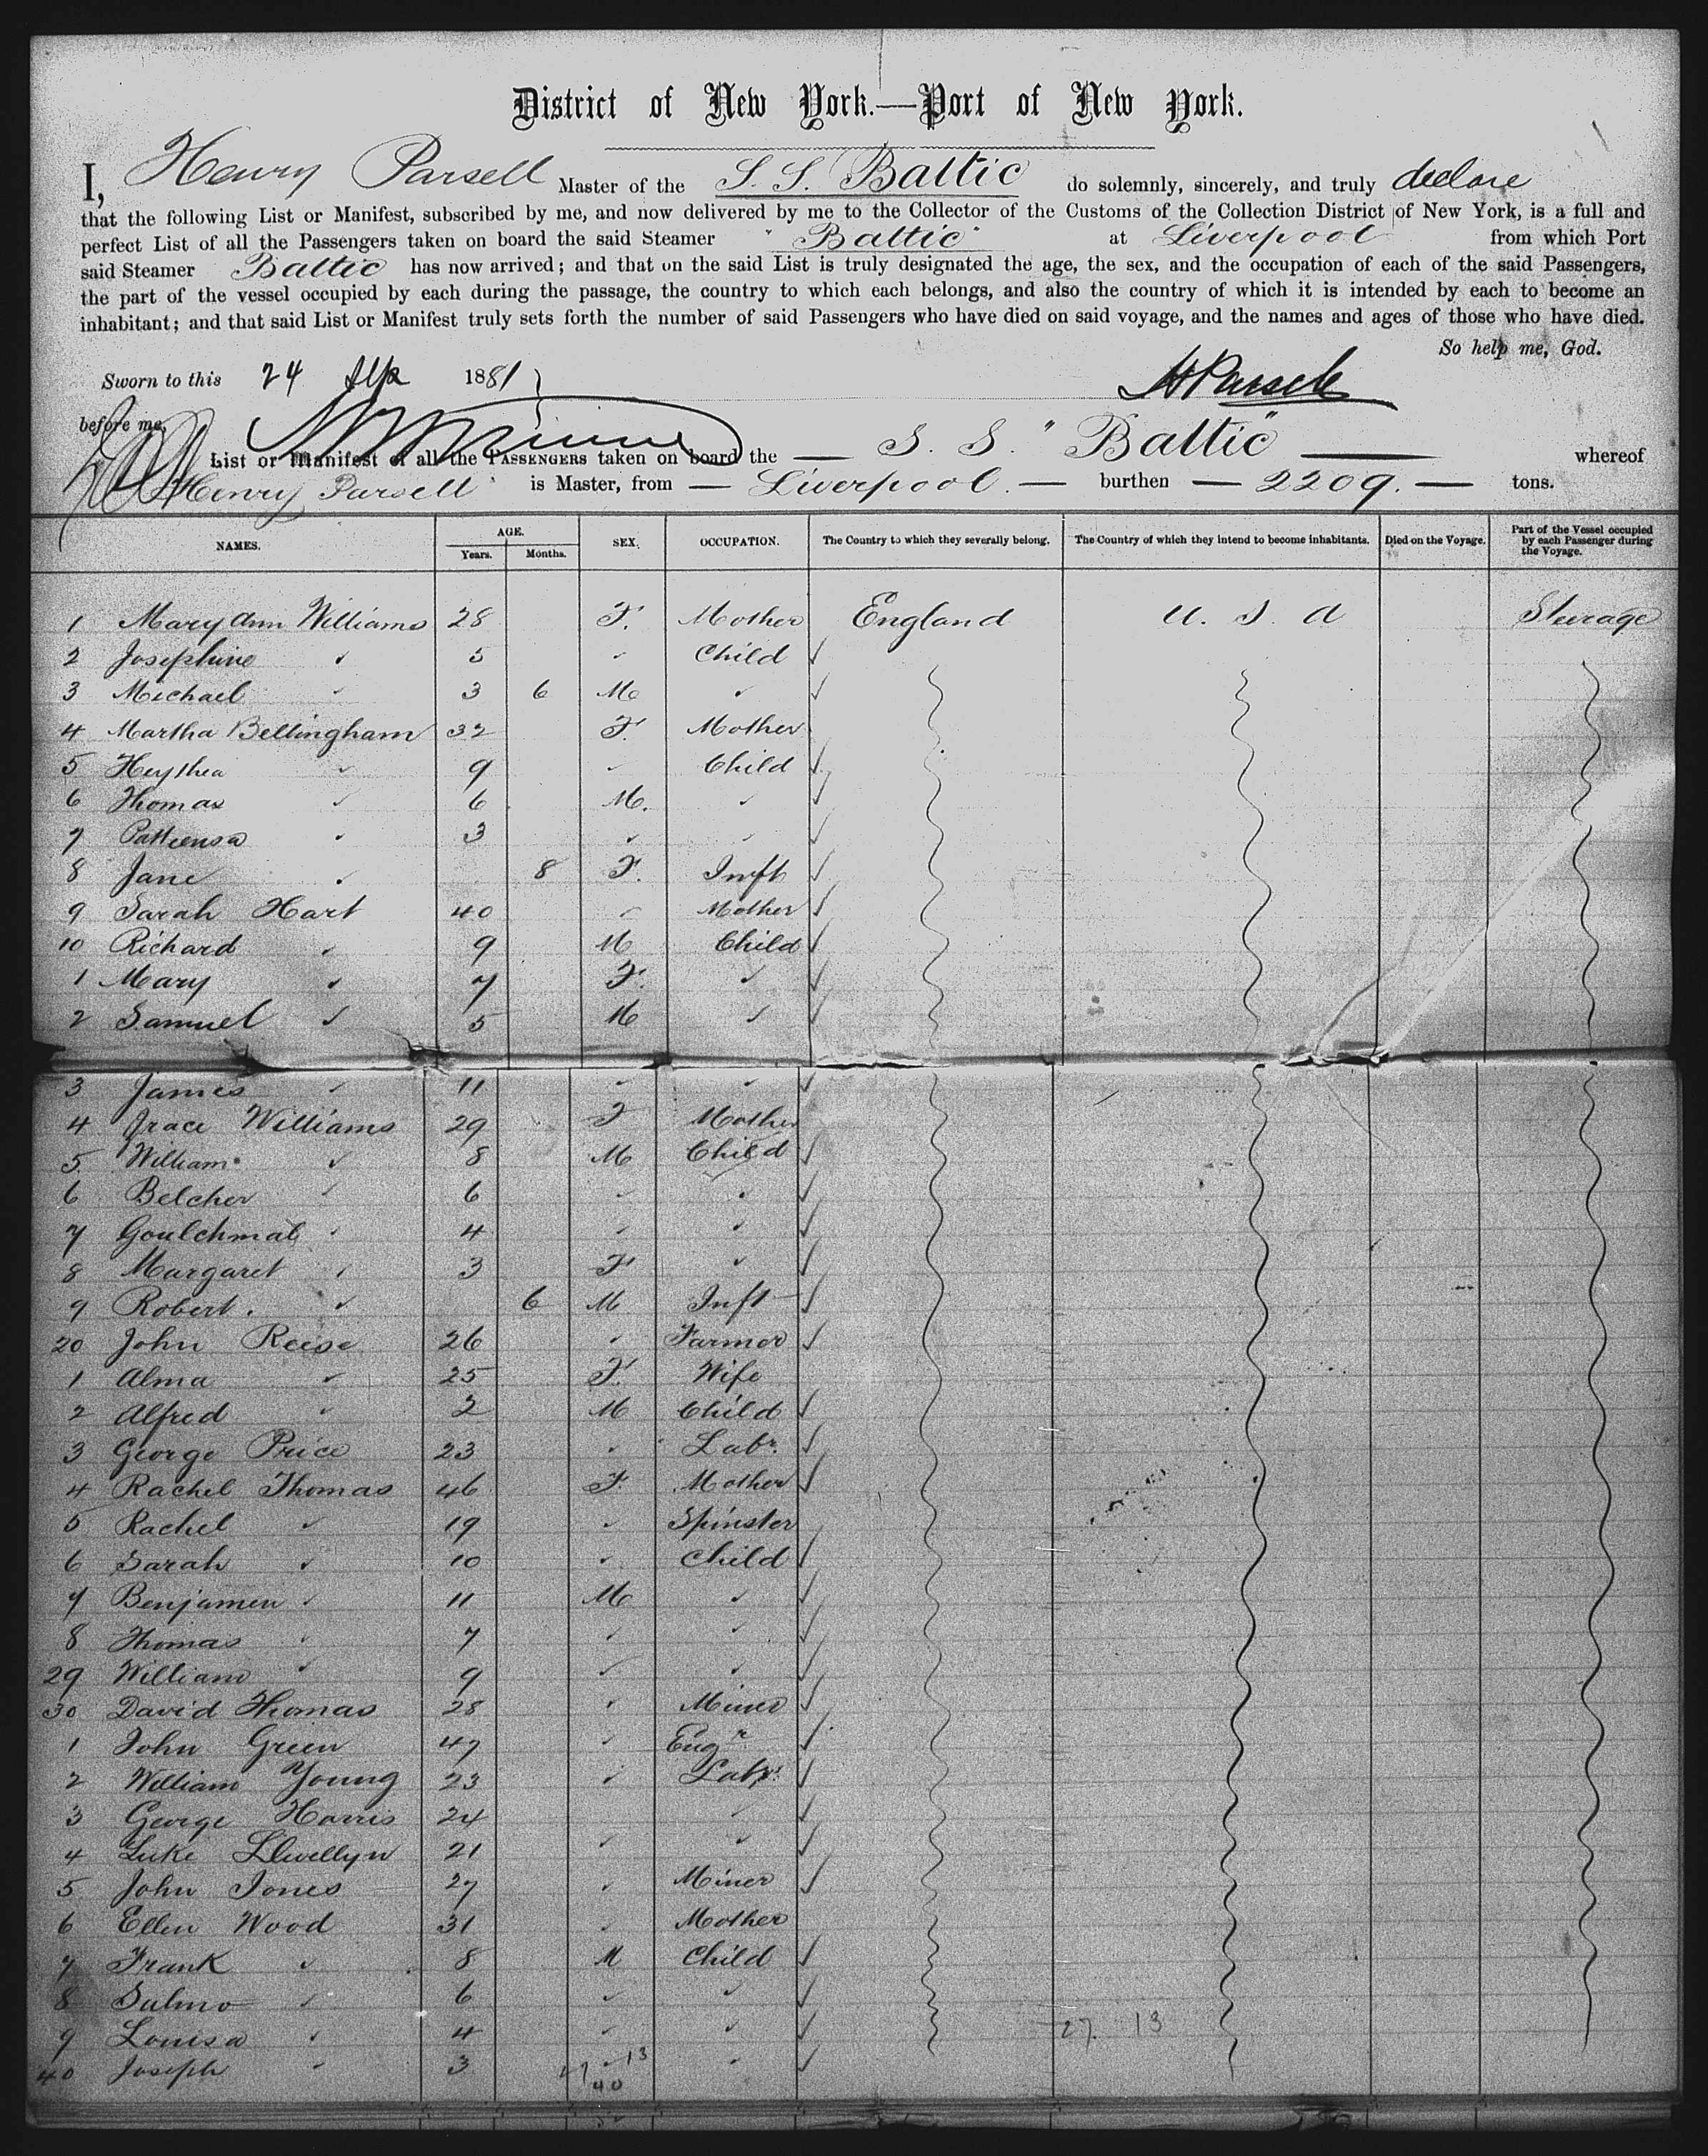 District of New York.—Port of New York.
I, Henry Parsell Master of the S. S. Baltic do solemnly, sincerely, and truly declare
that the following List or Manifest, subscribed by me, and now delivered by me to the Collector of the Customs of the Collection District of New York, is a full and
perfect List of all the Passengers taken on board the said Steamer "Baltic" at Liverpool from which Port
said Steamer Baltic has now arrived; and that on the said List is truly designated the age, the sex, and the occupation of each of the said Passengers,
the part of the vessel occupied by each during the passage, the country to which each belongs, and also the country of which it is intended by each to become an
inhabitant; and that said List or Manifest truly sets forth the number of said Passengers who have died on said voyage, and the names and ages of those who have died.
So help me, God.
Sworn to this 24 Sep 1881 H Parsell
before me,
List or Manifest of all the PASSENGERS taken on board the — S. S. "Baltic" — whereof
Henry Parsell is Master, from — Liverpool. — burthen — 2209. — tons.
NAMES. AGE. Years. Months. SEX. OCCUPATION. The Country to which they severally belong. The Country of which they intend to become inhabitants. Died on the Voyage. Part of the Vessel occupied by each Passenger during the Voyage.
1 Mary Ann Williams 28 F. Mother England U. S. A Steerage
2 Josephine ✓ 5 ✓ Child ✓
3 Michael ✓ 3 6 M ✓ ✓
4 Martha Bellingham 32 F. Mother
5 Heythea ✓ 9 ✓ Child ✓
6 Thomas ✓ 6 M. ✓ ✓
7 ✓ 3 ✓ ✓ ✓
8 Jane ✓ 8 F. Inft ✓
9 Sarah Hart 40 ✓ Mother ✓
10 Richard ✓ 9 M Child ✓
1 Mary ✓ 7 F. ✓ ✓
2 Samuel ✓ 5 M ✓ ✓
3 James ✓ 11 ✓ ✓ ✓
4 Grace Williams 29 F Mother
5 William ✓ 8 M Child ✓
6 Belcher ✓ 6 ✓ ✓ ✓
7 Goulchmal ✓ 4 ✓ ✓ ✓
8 Margaret ✓ 3 F ✓ ✓
9 Robert. ✓ 6 M Inft ✓
20 John Reese 26 ✓ Farmer ✓
1 Alma ✓ 25 F. Wife
2 Alfred ✓ 2 M Child ✓
3 George Price 23 ✓ Labr. ✓
4 Rachel Thomas 46 F. Mother ✓
5 Rachel ✓ 19 ✓ Spinster
6 Sarah ✓ 10 ✓ Child ✓
7 Benjamen ✓ 11 M ✓ ✓
8 Thomas ✓ 7 ✓ ✓ ✓
29 William ✓ 9 ✓ ✓ ✓
30 David Thomas 28 ✓ Miner ✓
1 John Green 47 ✓ Engr ✓
2 William Young 23 ✓ Labr. ✓
3 George Harris 24 ✓ ✓
4 Luke Llwellyn 21 ✓ ✓ ✓
5 John Jones 27 ✓ Miner ✓
6 Ellen Wood 31 ✓ Mother
7 Frank ✓ 8 M Child ✓
8 Sulmo ✓ 6 ✓ ✓ ✓
9 Louisa ✓ 4 ✓ ✓ ✓ 27. 13
40 Joseph ✓ 3 ✓ ✓ ✓
27 13
40